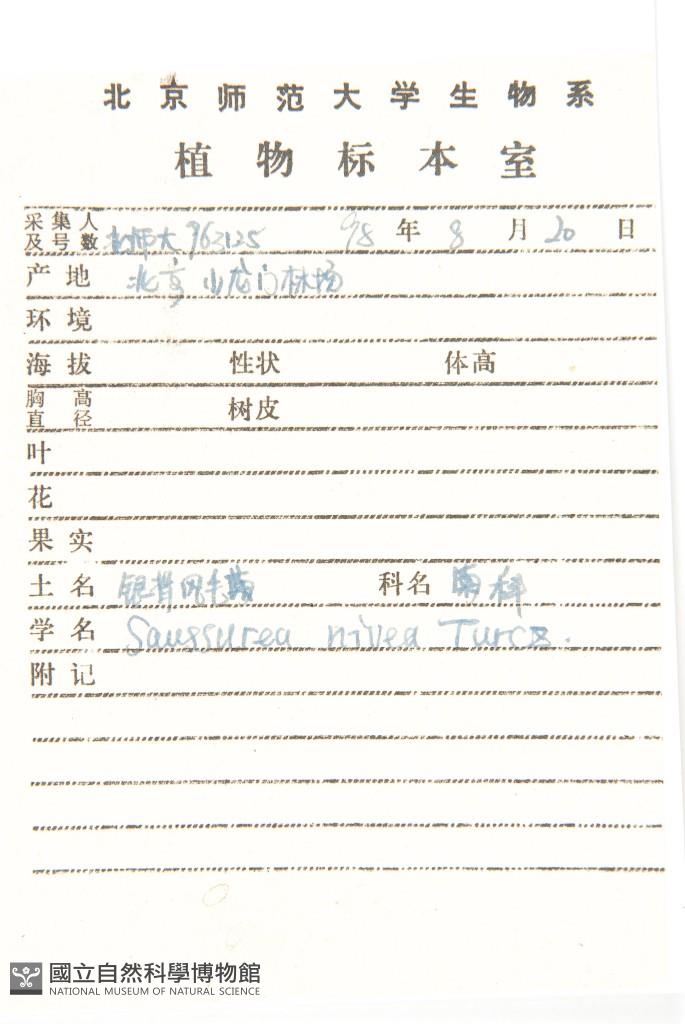 北京师范大学生物系
植物标本室
采集人及号数 北师大 963125 98 年 8 月 20 日
产地 北京 小龙门林场
环境
海拔 性状 体高
胸高直径 树皮
叶
花
果实
土名 银背风毛菊 科名 菊科
学名 Saussurea nivea Turcz.
附记
國立自然科學博物館
NATIONAL MUSEUM OF NATURAL SCIENCE